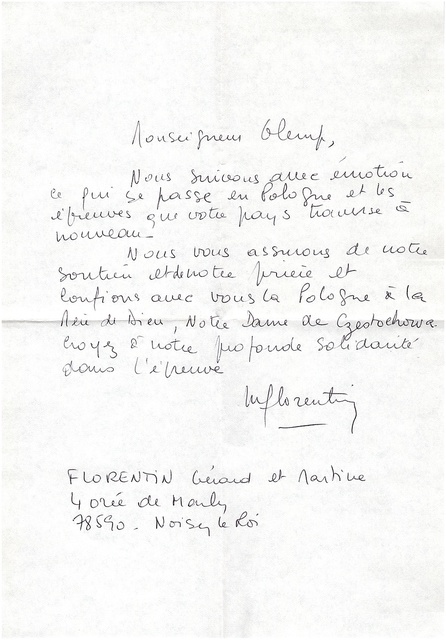 Monseigneur Glemp,
Nous suivons avec émotion
ce qui se passe en Pologne et les
épreuves que votre pays traverse à
nouveau.
Nous vous assurons de notre
soutien et de notre prière et
confions avec vous la Pologne à la
Mère de Dieu, Notre Dame de Czestochowa.
Croyez à notre profonde solidarité
dans l'épreuve
Mflorentin
FLORENTIN Gérard et Martine
4 orée de Marly
78590. Noisy le Roi